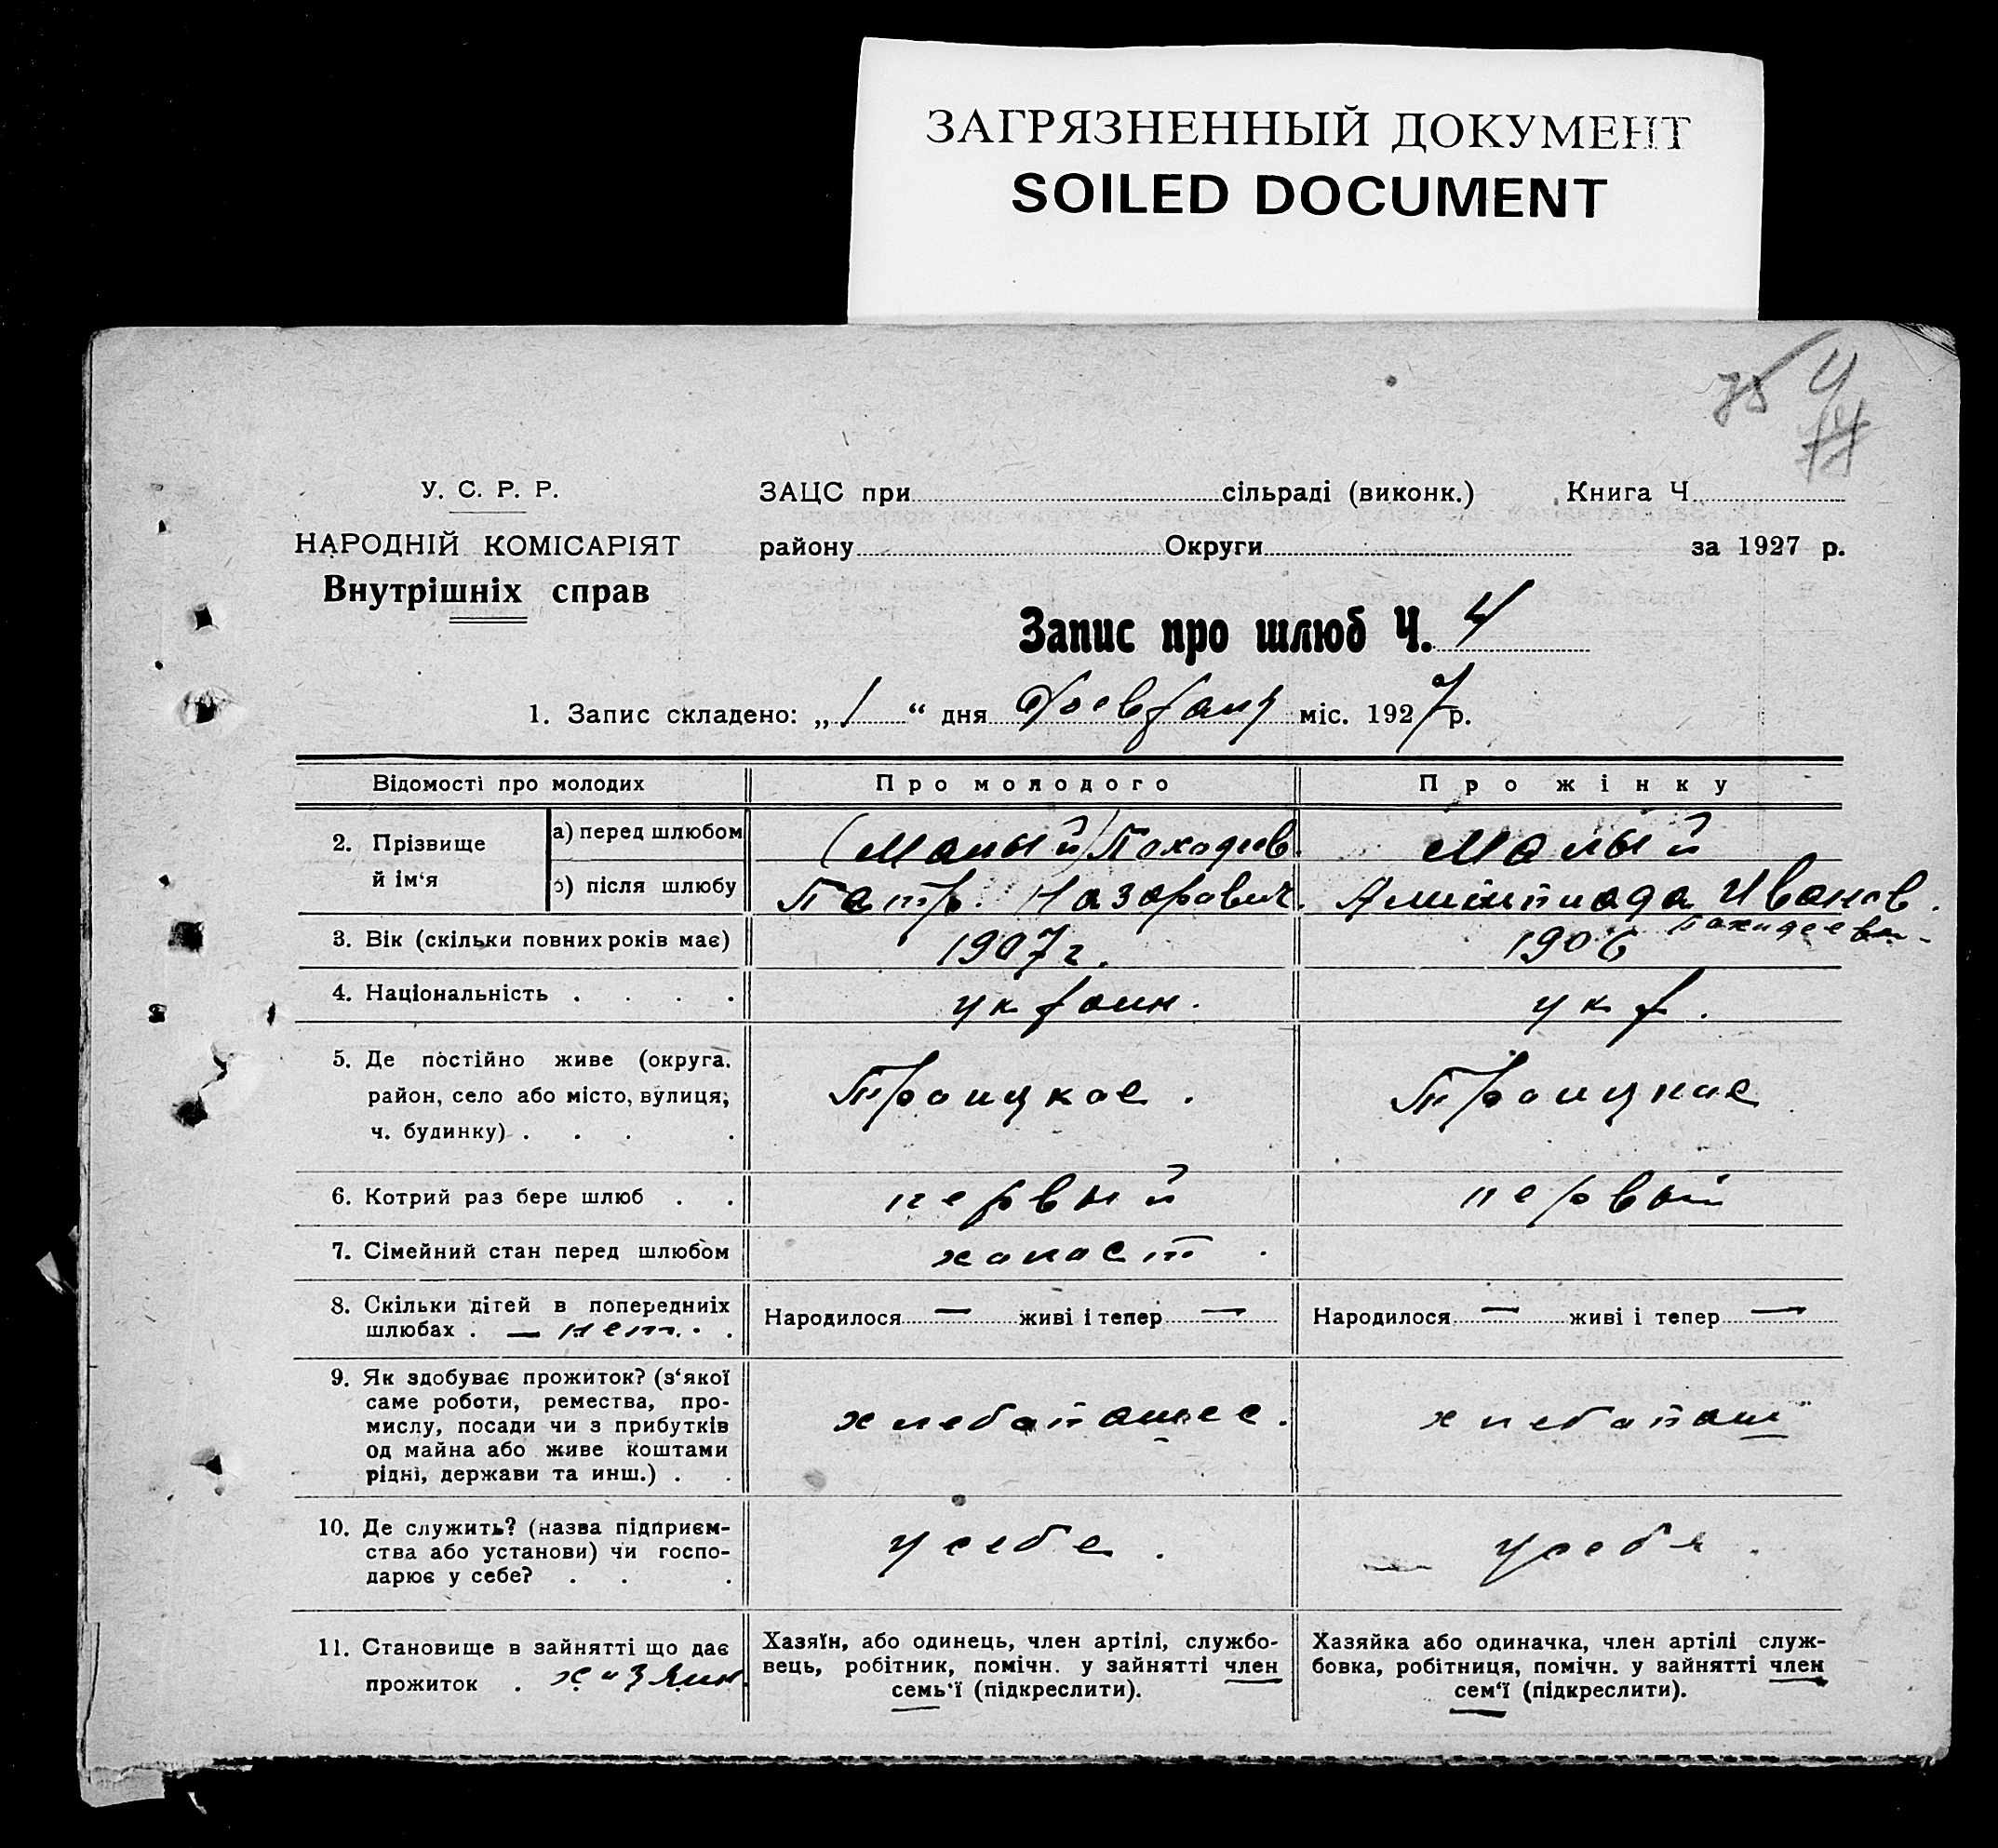 ЗАГРЯЗНЕННЫЙ ДОКУМЕНТ
SOILED DOCUMENT
75 4
У. С. Р. Р.
НАРОДНІЙ КОМІСАРІЯТ
Внутрішніх справ
ЗАЦС при сільраді (виконк.) Книга Ч
району Округи за 1927 р.
Запис про шлюб Ч. 4
1. Запис складено: „ 1 “ дня міс. 1927 р.
Відомості про молодих Про молодого Про жінку
2. Прізвище й ім‘я
а) перед шлюбом (Малый) Походеев Малый
б) після шлюбу Петр. Назарович. Иванов.
3. Вік (скільки повних років має) 1907 г. 1906
4. Національність . . . . украин. укр.
5. Де постійно живе (округа, Троицкое. Троицкое
район, село або місто, вулиця;
ч. будинку) . . . .
6. Котрий раз бере шлюб . . первый первый
7. Сімейний стан перед шлюбом холост.
8. Скільки дітей в попередниіх Народилося — живі і тепер — Народилося — живі і тепер —
шлюбах . — нет. . .
9. Як здобуває прожиток? (з‘якої
саме роботи, ремества, про-
мислу, посади чи з прибутків хлебопашес. хлебопаш
од майна або живе коштами
рідні, держави та инш.) . .
10. Де служить? (назва підприєм-
ства або установи) чи госпо- у себе. у себя.
дарює у себе? . . .
11. Становище в зайнятті що дає
прожиток . хозяин.
Хазяїн, або одинець, член артілі, службо-
вець, робітник, помічн. у зайнятті член
семь‘ї (підкреслити).
Хазяйка або одиначка, член артілі служ-
бовка, робітниця, помічн. у зайнятті член
сем‘ї (підкреслити).